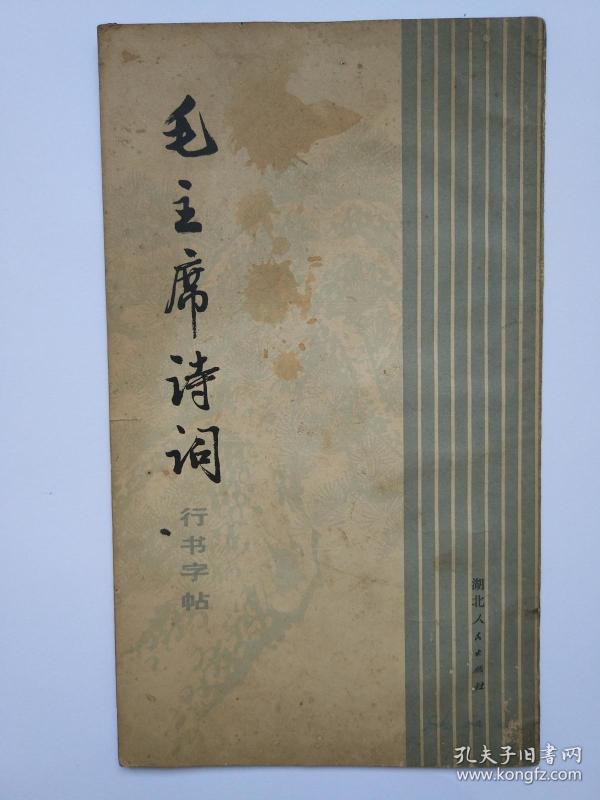 毛主席诗词
行书字帖
湖北人民出版社
孔夫子旧书网
www.kongfz.com